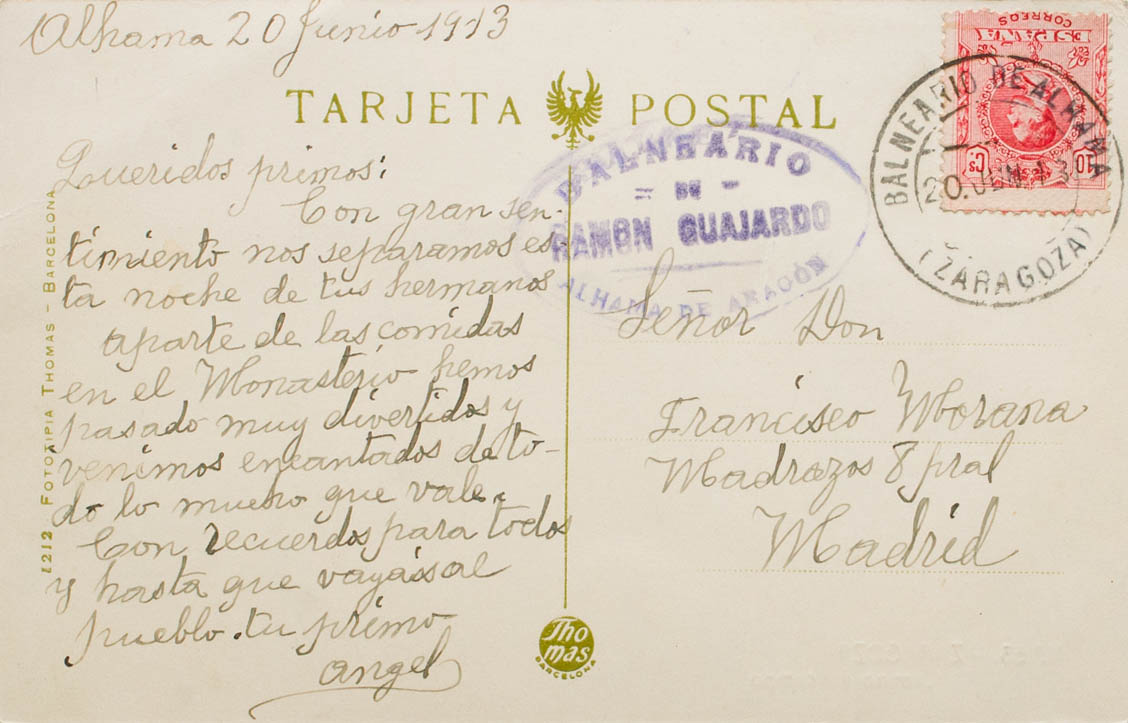 Alhama 20 Junio 1913
TARJETA POSTAL
Queridos primos:
Con gran sen-
timiento nos separamos es-
ta noche de tus hermanos
aparte de las comidas
en el Monasterio hemos
pasado muy divertidos y
venimos encantados de to-
do lo mucho que vale.
Con recuerdos para todos
y hasta que vayáis al
pueblo. tu primo
angel
1212 FOTOTIPIA THOMAS - BARCELONA
BALNEARIO
= DE -
RAMON GUAJARDO
ALHAMA DE ARAGÓN
CORREOS
ESPAÑA
10 Cs
BALNEARIO DE ALHAMA
20.JUN.13
(ZARAGOZA)
Señor Don
Francisco Morana
Madrazos 8 pral
Madrid
Tho
mas
BARCELONA